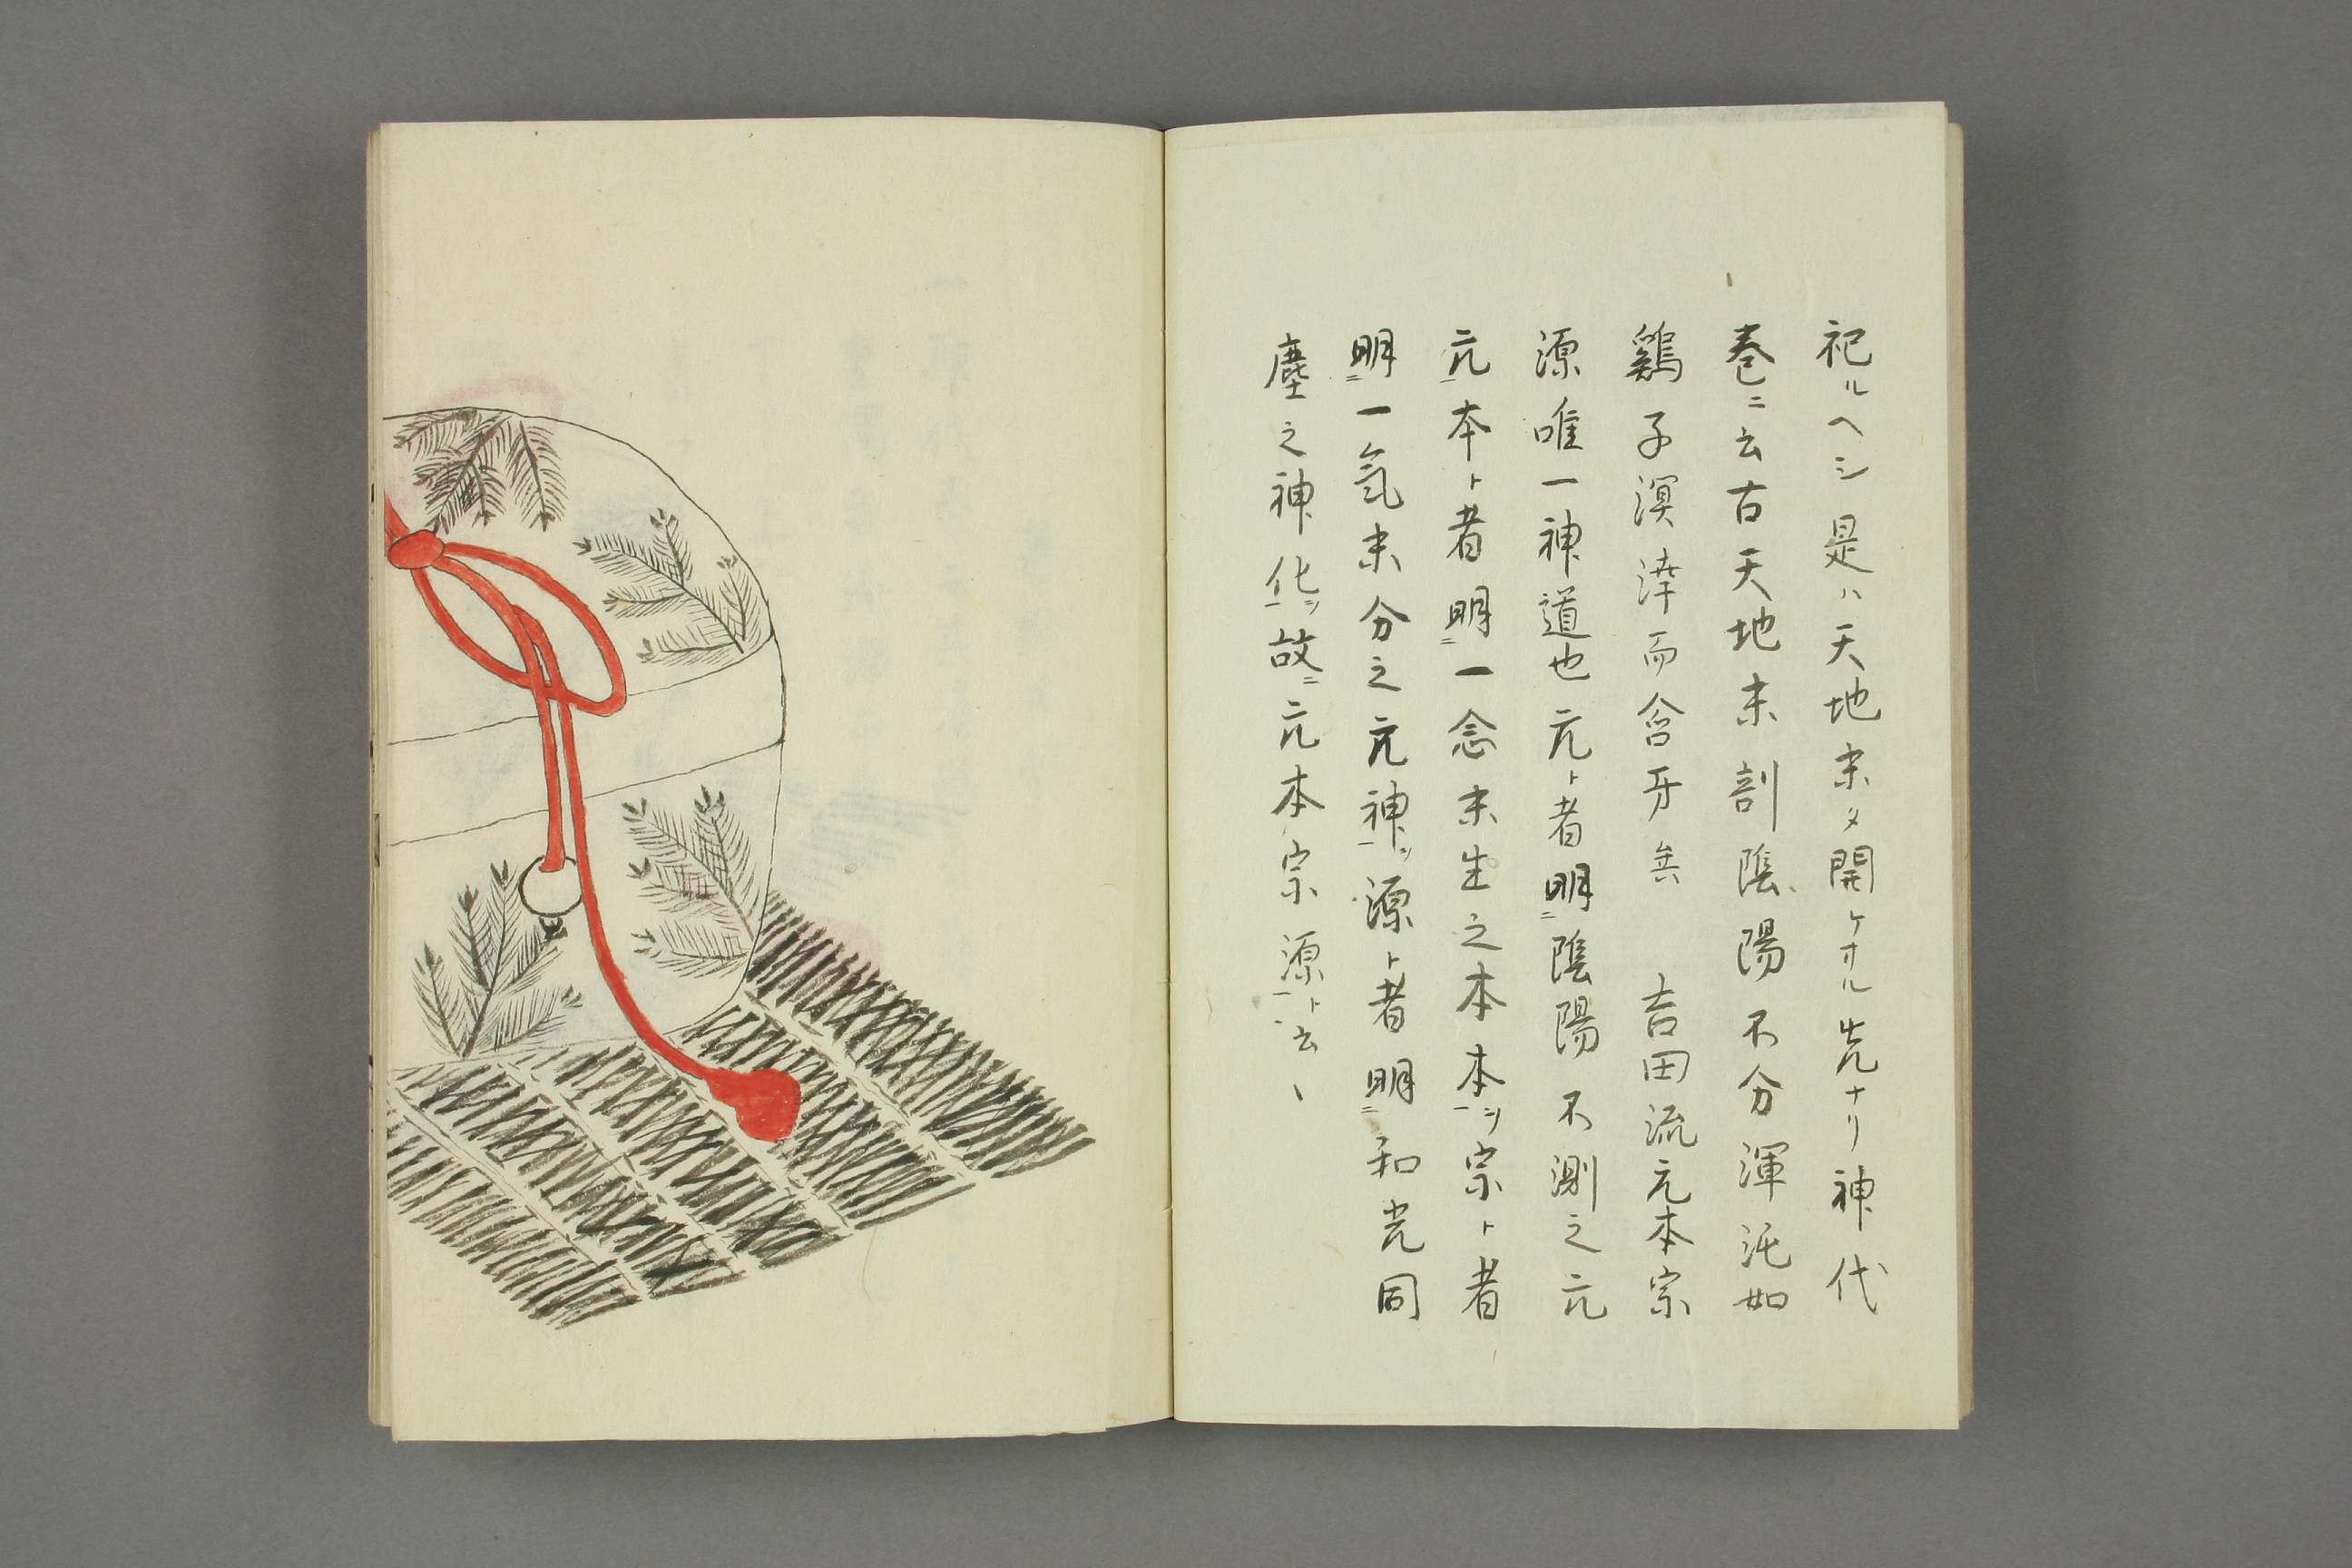 祀ルヘシ是ハ天地未タ開ケサル先ナリ神代
巻ニ云古天地未剖陰陽不分渾沌如
鷄子溟涬而含牙矣 吉田流元本宗
源唯一神道也元ト者明ニ陰陽不測之元
元一本ト者明ニ一念未生之本本一ヲ宗ト者
明ニ一氣未分之元神一ヲ源ト者明ニ和光同
塵之神化一ヲ故ニ元本宗源一ト云〻